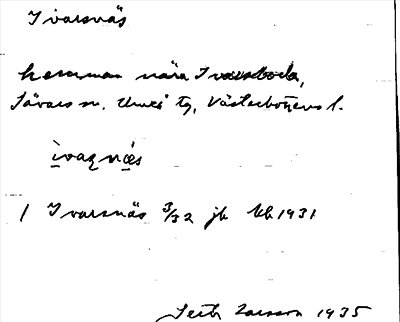 Ivarsnäs
hemman nära Ivarsboda,
Sävars sn. Umeå tg, Västerbottens l.
ìvaṣnæ̀s
1 Ivarsnäs 3/32 jb kb 1931
Seth Larsson 1935